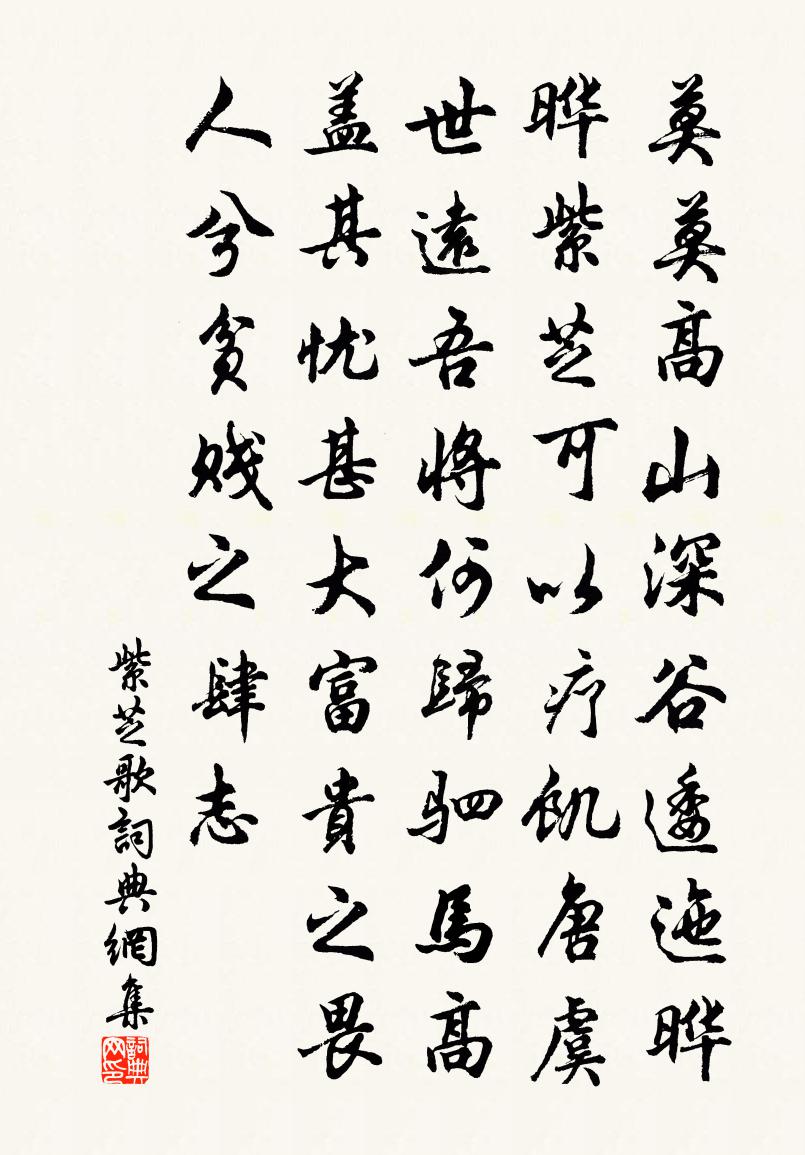 莫莫高山深谷逶迤晔
晔紫芝可以疗飢唐虞
世遠吾將何歸驷馬高
盖其忧甚大富貴之畏
人兮贫贱之肆志
紫芝歌詞典網集
詞典网印